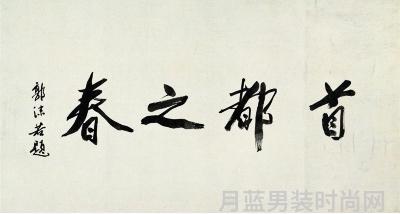 首都之春
郭沫若題
月蓝男装时尚网